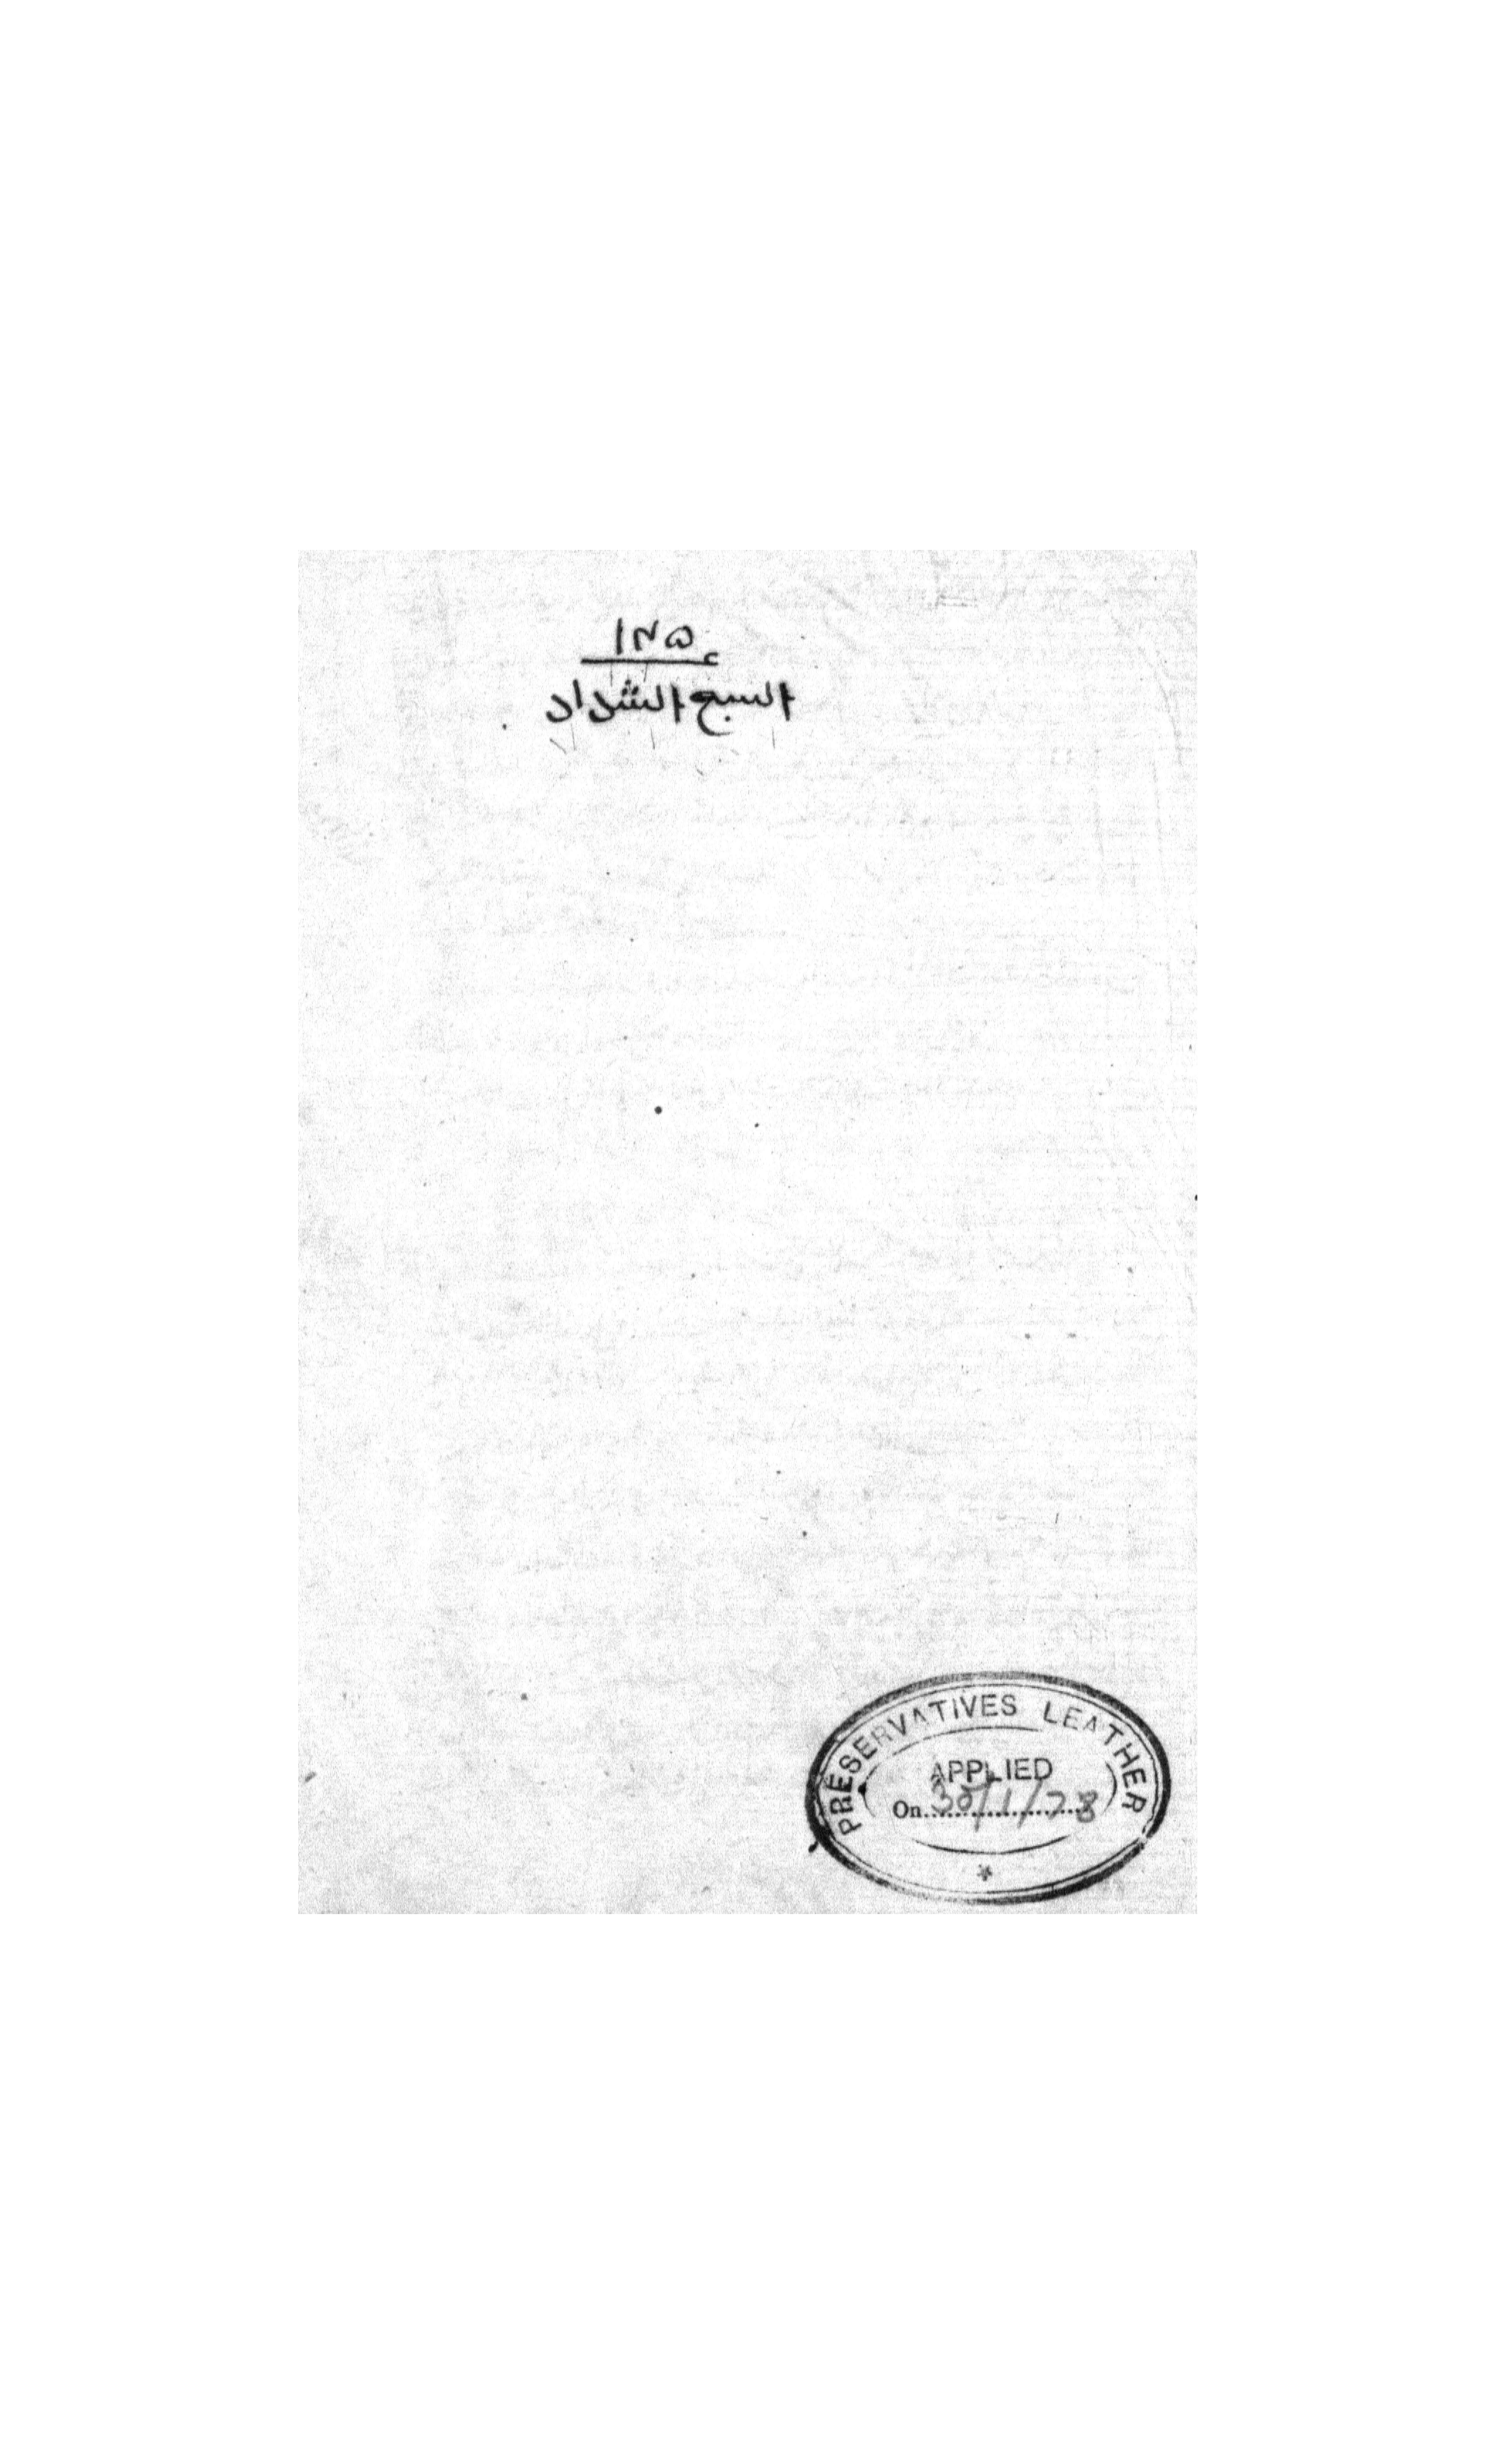 ۱۲۵
السبع الشداد
PRESERVATIVES LEATHER
APPLIED
On 30/1/78